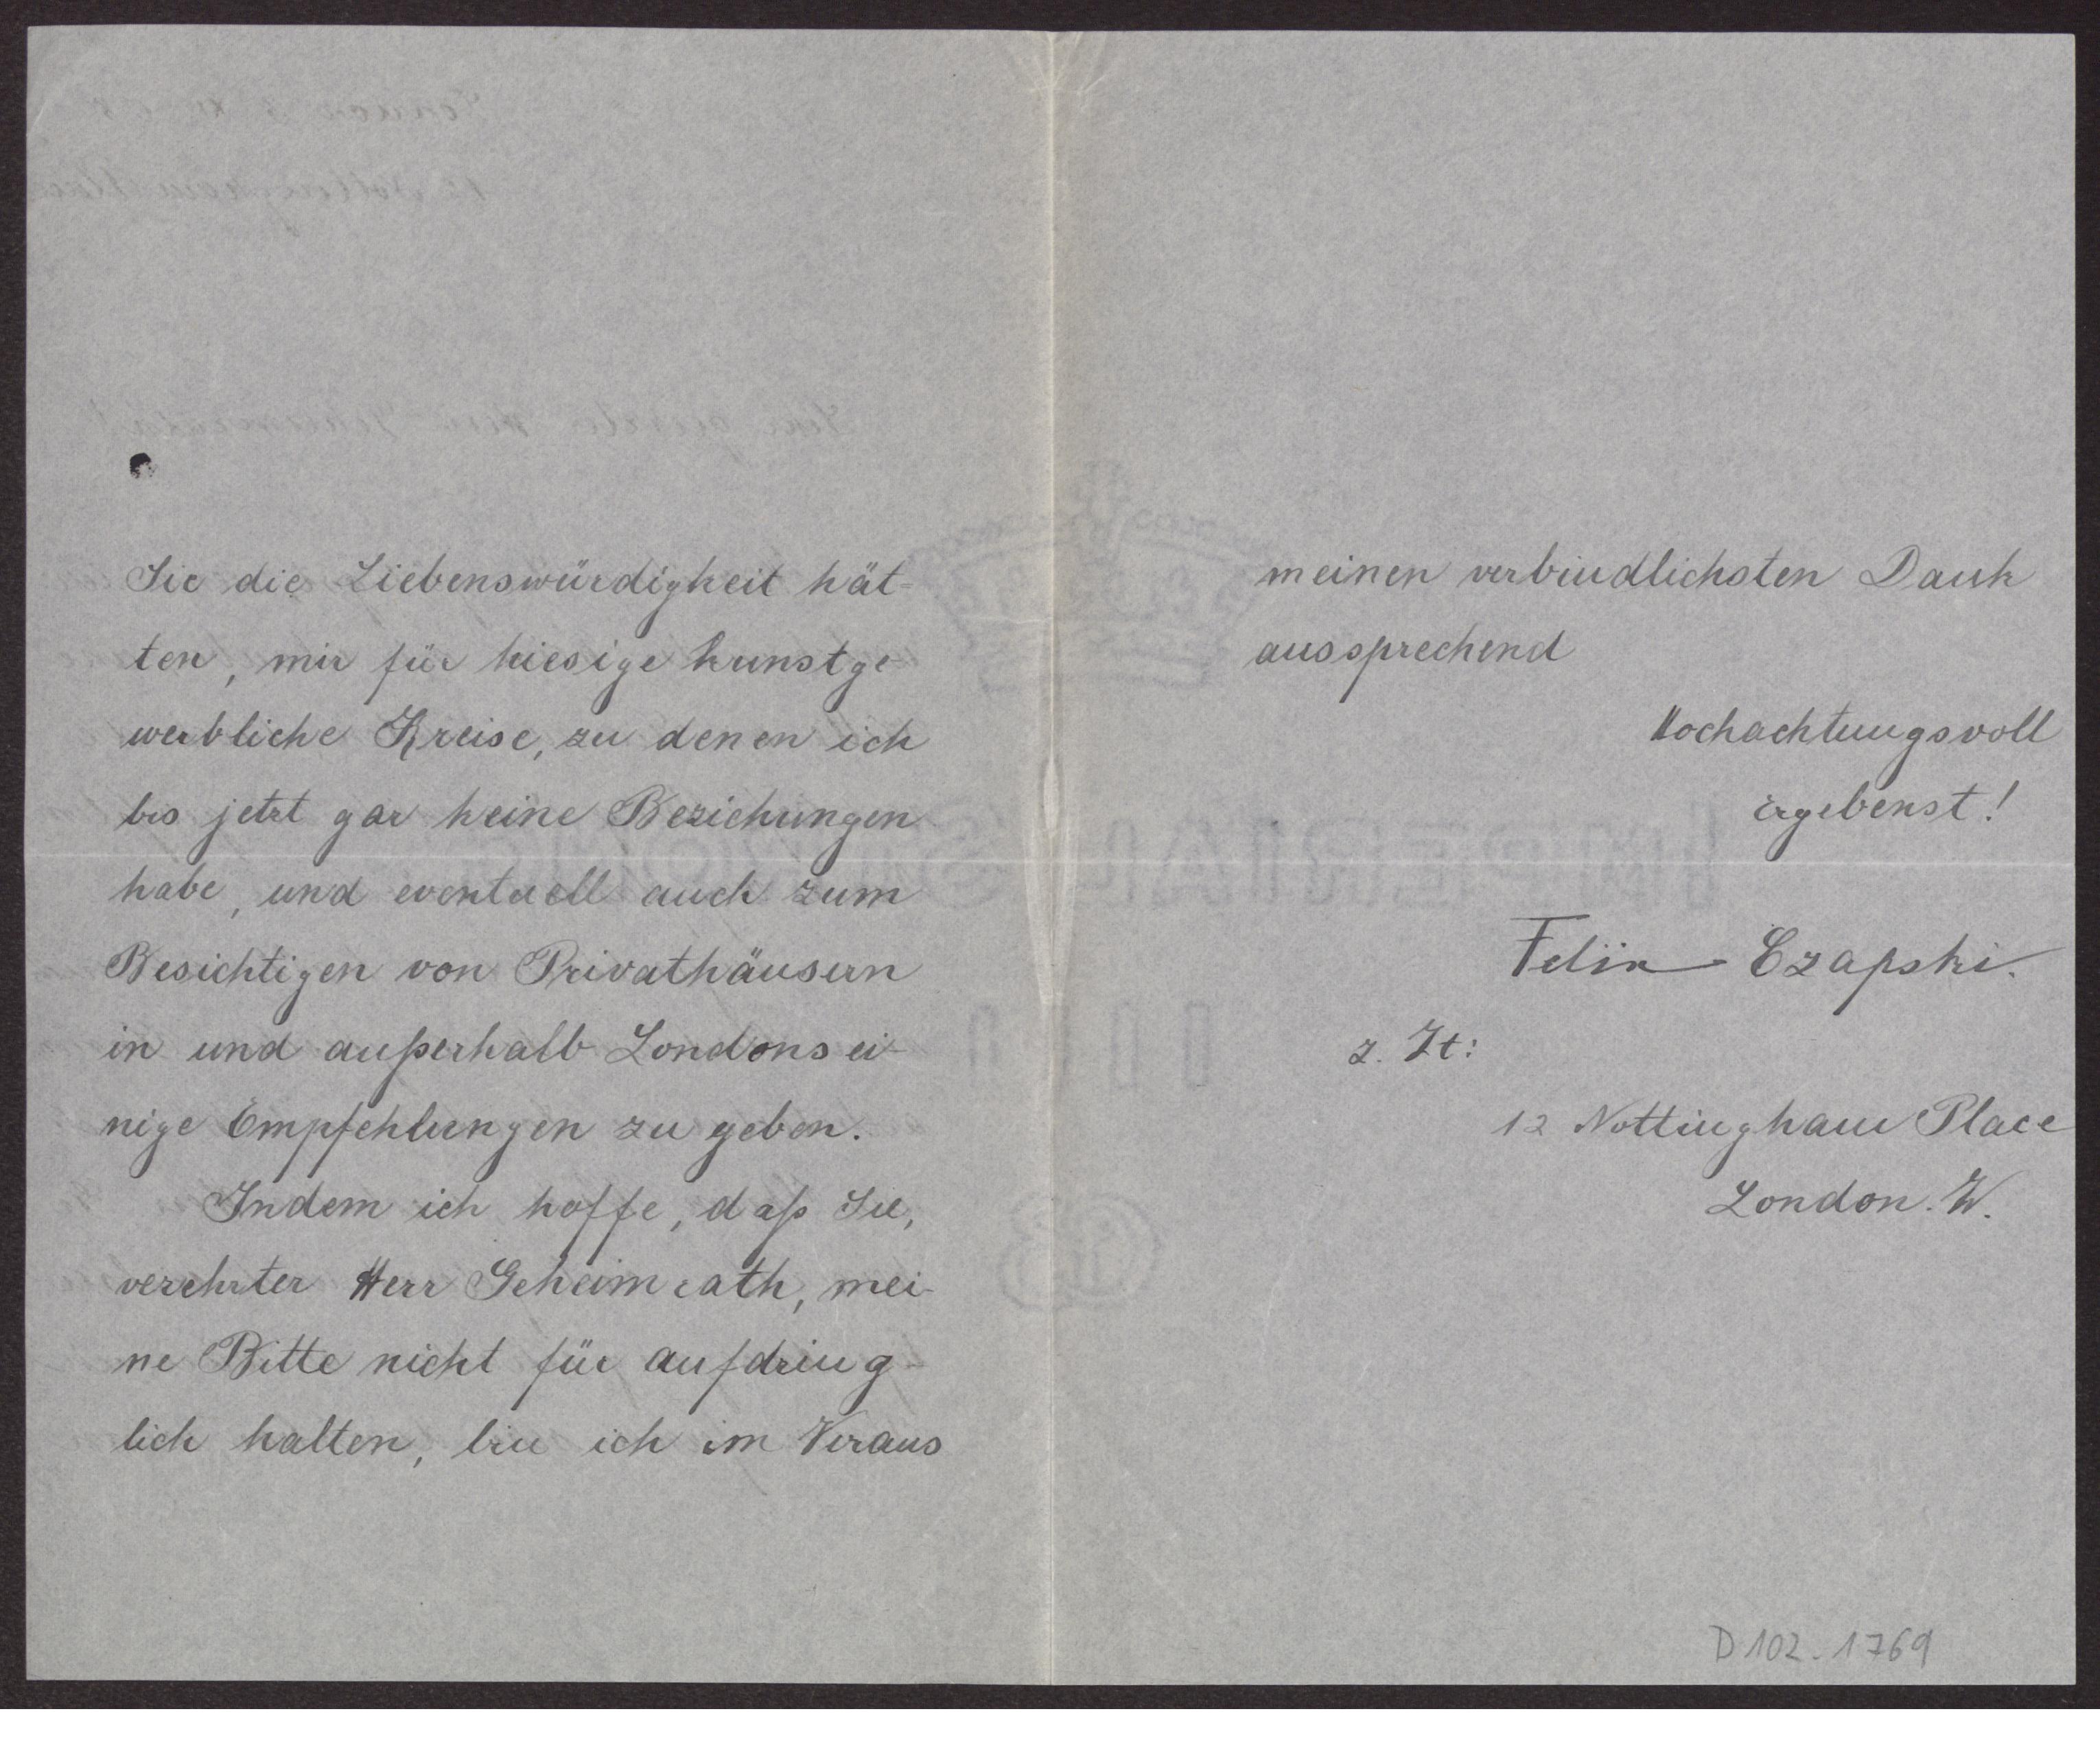 Sie die Liebenswürdigkeit hät-
ten, mir für hiesige kunstge-
werbliche Kreise, zu denen ich
bis jetzt gar keine Beziehungen
habe, und eventuell auch zum
Besichtigen von Privathäusern
in und außerhalb Londons ei-
nige Empfehlungen zu geben.
Indem ich hoffe, daß Sie,
verehrter Herr Geheimrath, mei-
ne Bitte nicht für aufdring-
lich halten, bin ich im Voraus
meinen verbindlichsten Dank
aussprechend
Hochachtungsvoll
ergebenst!
Felix Czapski.
z. Zt:
12 Nottingham Place
London. W.
D 102. 1769